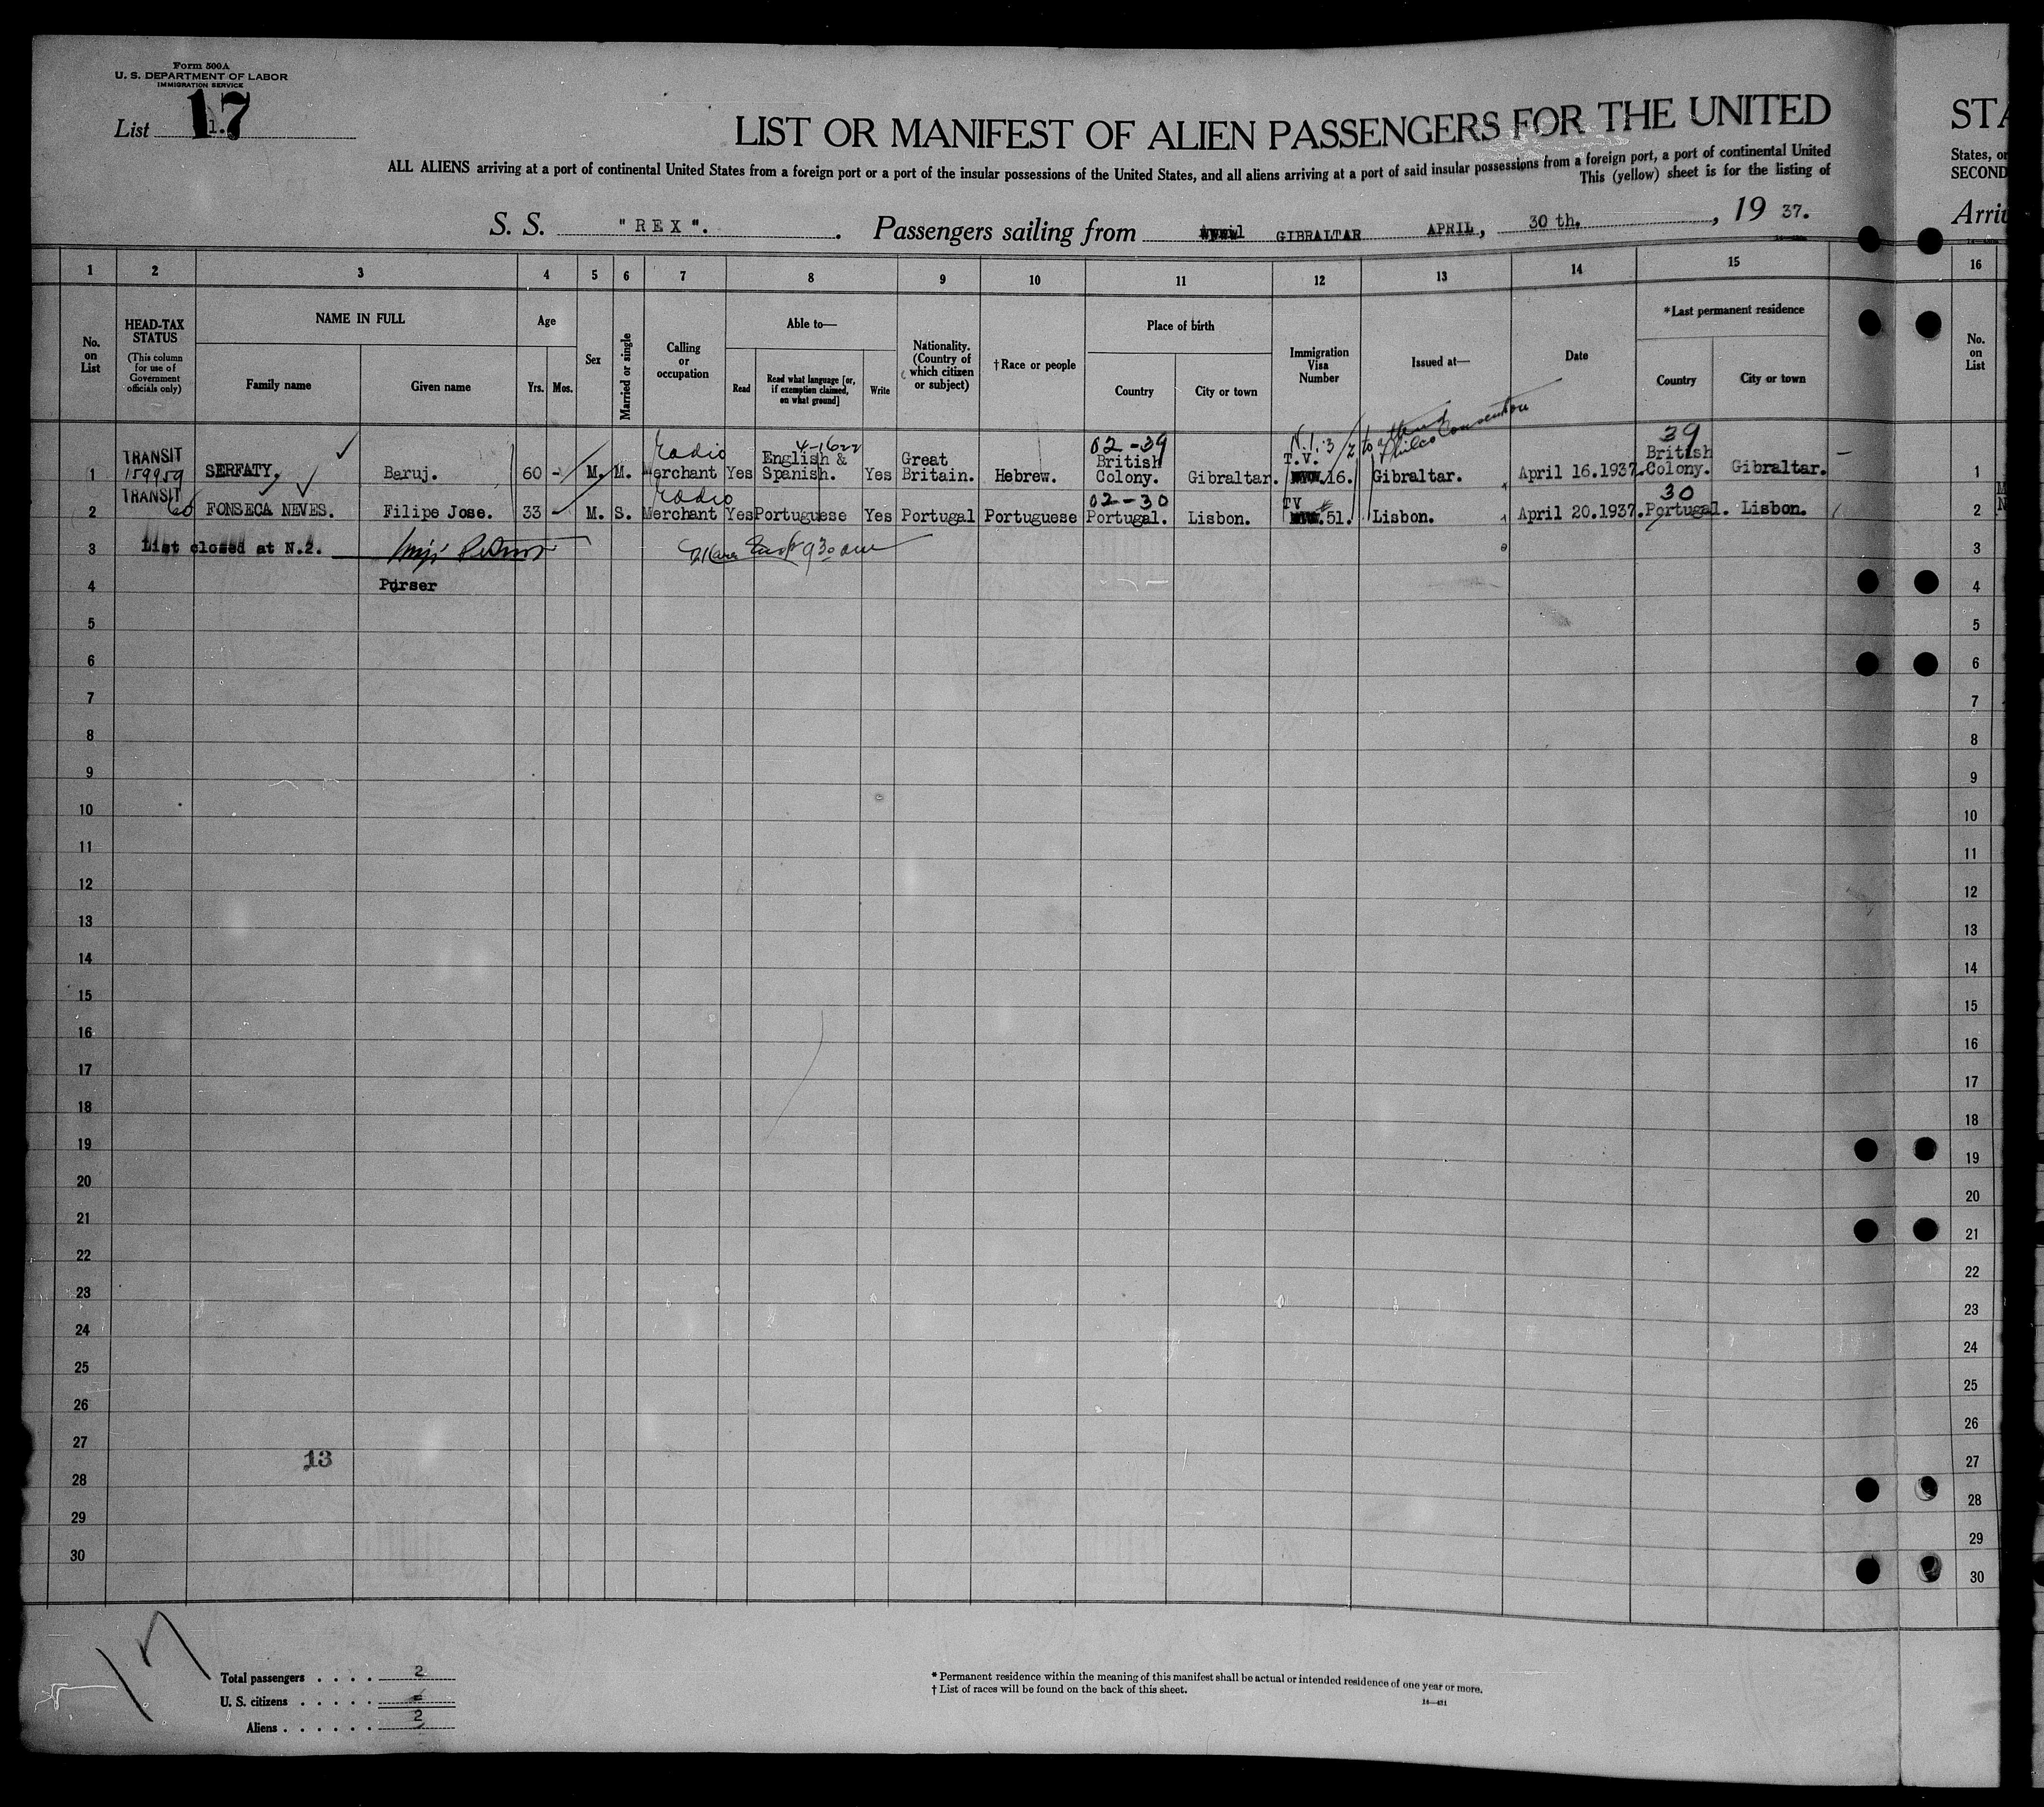 Form 500A
U. S. DEPARTMENT OF LABOR
IMMIGRATION SERVICE
List 1. 17
LIST OR MANIFEST OF ALIEN PASSENGERS FOR THE UNITED
STA
ALL ALIENS arriving at a port of continental United States from a foreign port or a port of the insular possessions of the United States, and all aliens arriving at a port of said insular possessions from a foreign port, a port of continental United
States, or
This (yellow) sheet is for the listing of
SECOND
S. S. "REX". Passengers sailing from GIBRALTAR APRIL, 30 th. , 19 37.
Arriv
1 2 3 4 5 6 7 8 9 10 11 12 13 14 15 16
No. on List
HEAD-TAX STATUS
(This column for use of Government officials only)
NAME IN FULL
Family name Given name
Age
Yrs. Mos.
Sex
Married or single
Calling or occupation
Able to—
Read
Read what language [or, if exemption claimed, on what ground]
Write
Nationality. (Country of which citizen or subject)
† Race or people
Place of birth
Country City or town
Immigration Visa Number
Issued at—
Date
* Last permanent residence
Country City or town
No. on List
1 TRANSIT 159959 SERFATY. Baruj. 60 - M. M. radio Merchant Yes 4-1622 English & Spanish. Yes Great Britain. Hebrew. 02-39 British Colony. Gibraltar. N.1. 3/2 to attend Philco Convention T.V. 16. Gibraltar. April 16.1937. 39 British Colony. Gibraltar. 1
2 TRANSIT 60 FONSECA NEVES. Filipe Jose. 33 - M. S. radio Merchant Yes Portuguese Yes Portugal Portuguese 02-30 Portugal. Lisbon. TV 51. Lisbon. April 20.1937. 30 Portugal. Lisbon. 2
3 List closed at N.2. 9 30 am 3
4 Purser 4
5 5
6 6
7 7
8 8
9 9
10 10
11 11
12 12
13 13
14 14
15 15
16 16
17 17
18 18
19 19
20 20
21 21
22 22
23 23
24 24
25 25
26 26
27 13 27
28 28
29 29
30 30
17
Total passengers . . . . 2
U. S. citizens . . . . . -
Aliens . . . . . . 2
* Permanent residence within the meaning of this manifest shall be actual or intended residence of one year or more.
† List of races will be found on the back of this sheet.